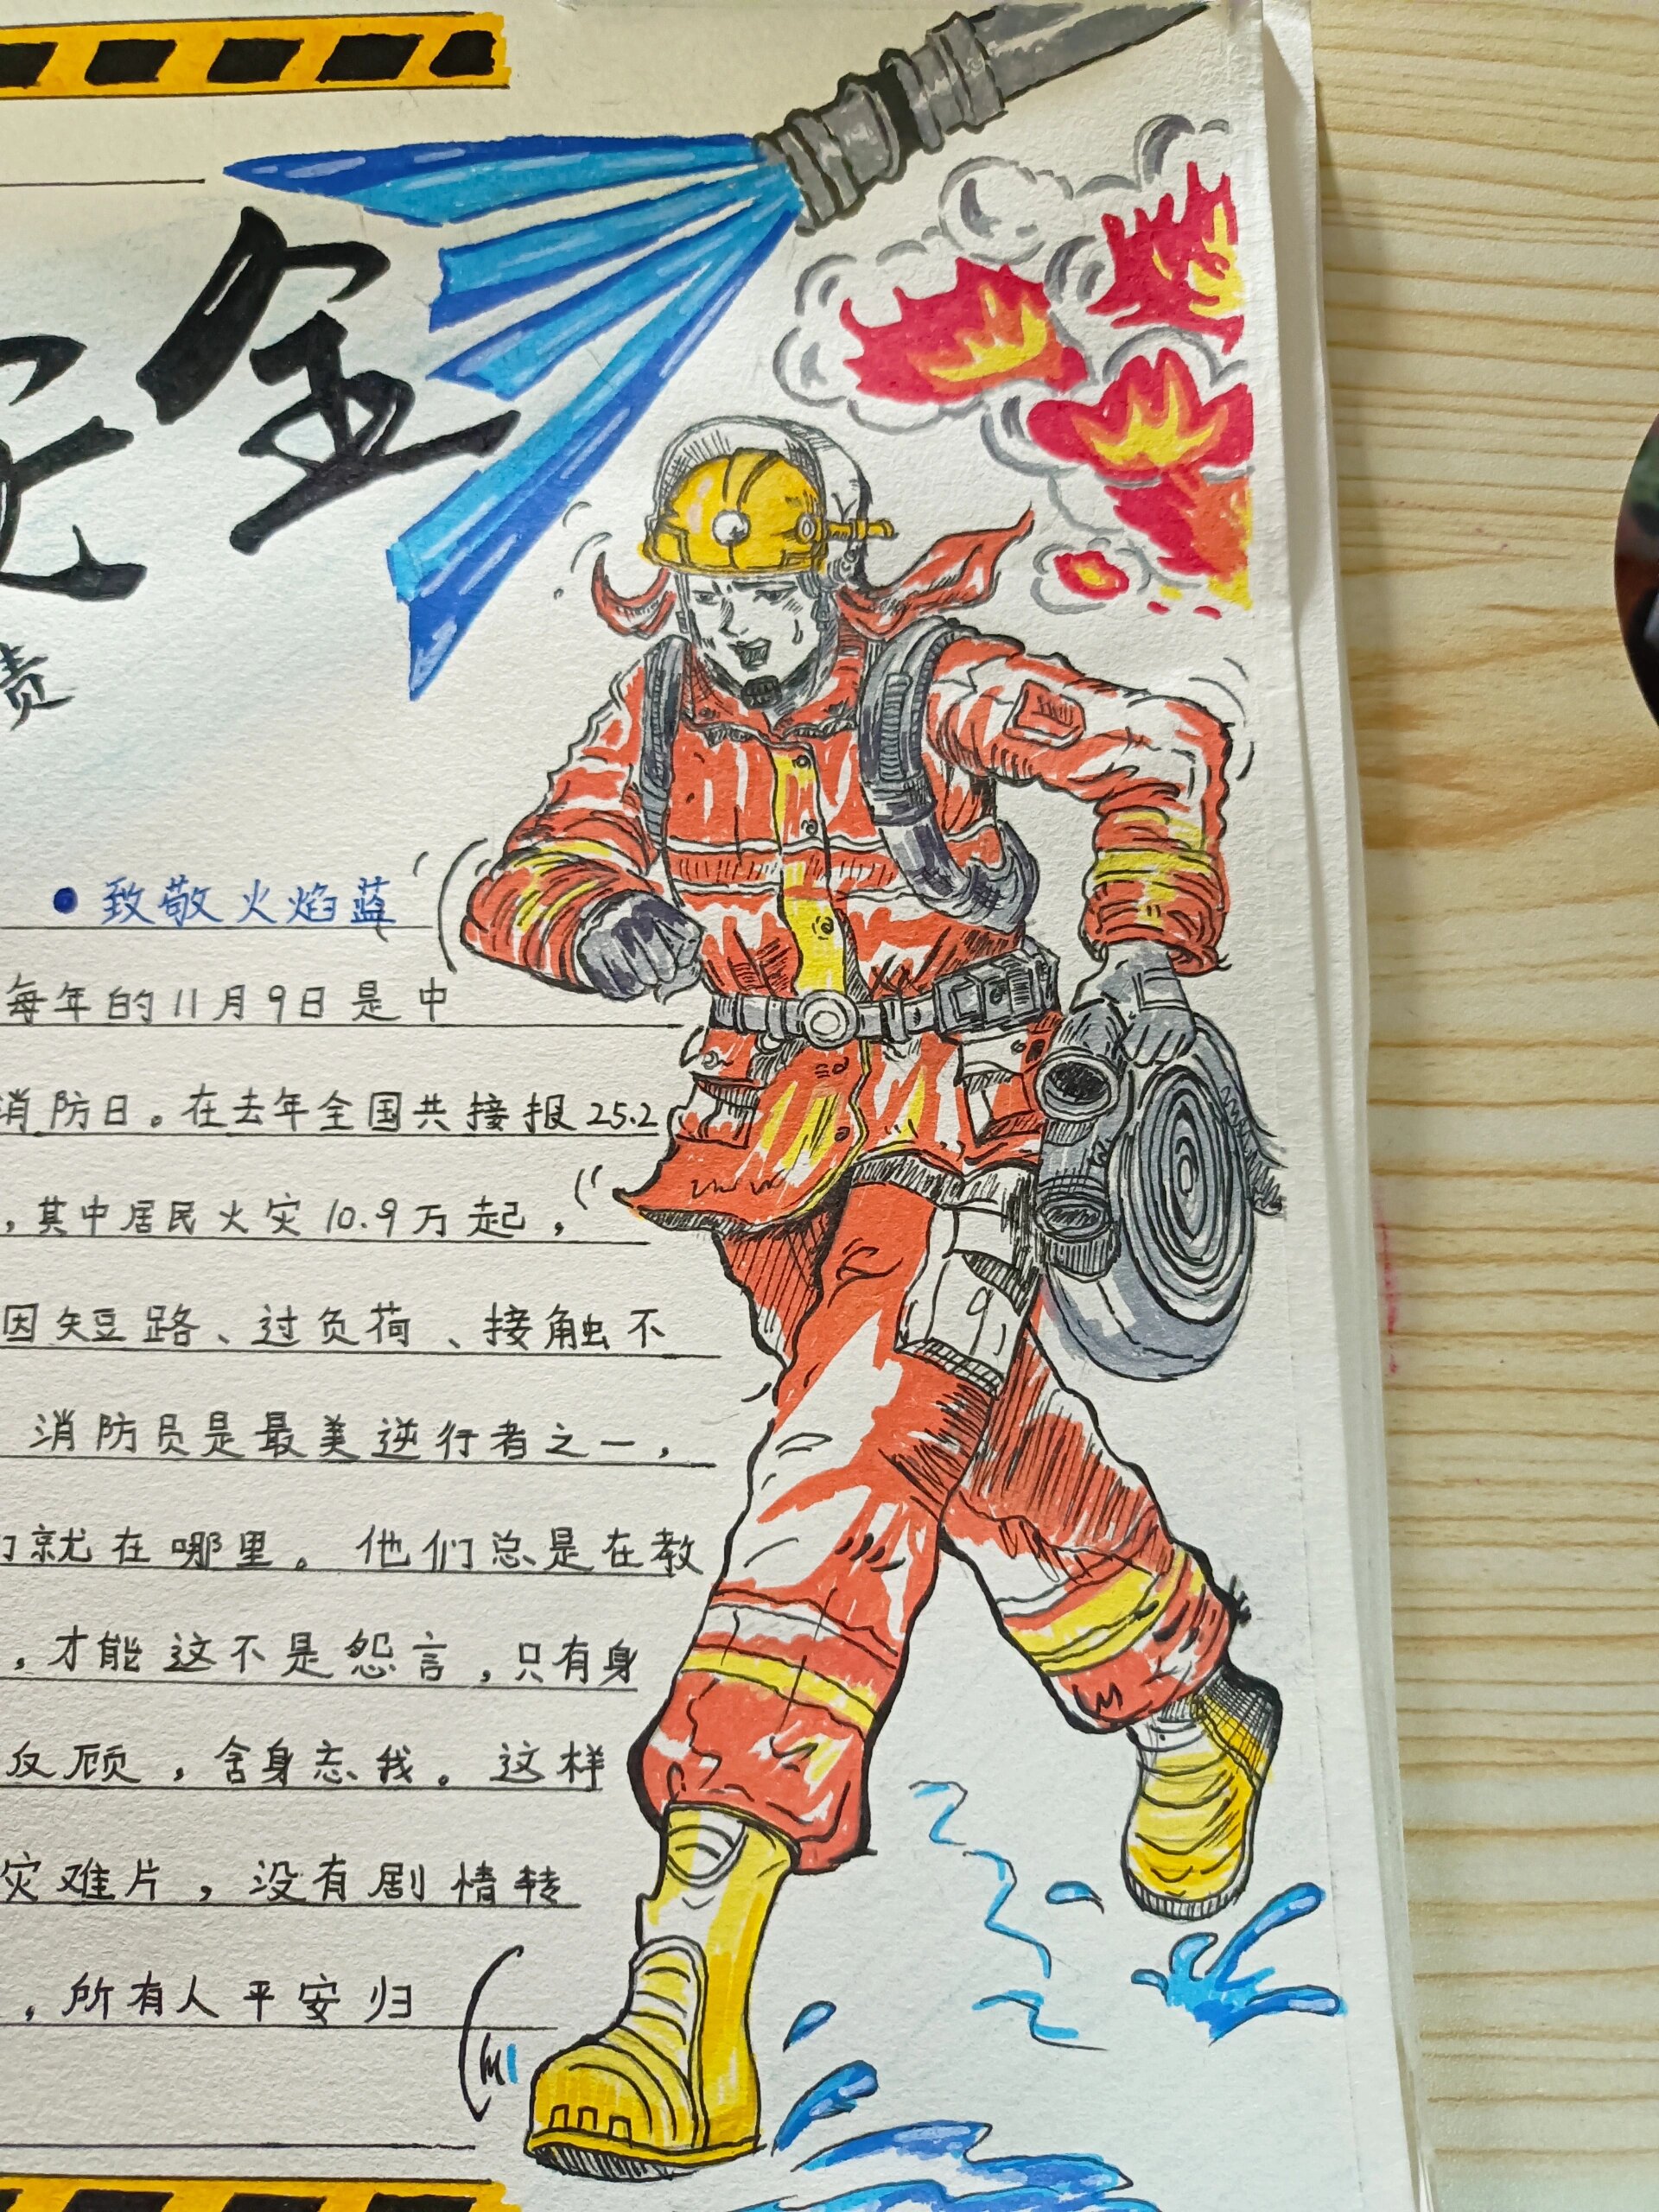 安全
责
• 致敬火焰蓝
每年的11月9日是中
消防日。在去年全国共接报25.2
，其中居民火灾10.9万起，
因短路、过负荷、接触不
消防员是最美逆行者之一，
们就在哪里。他们总是在教
，才能这不是怨言，只有身
反顾，舍身忘我。这样
灾难片，没有剧情转
，所有人平安归